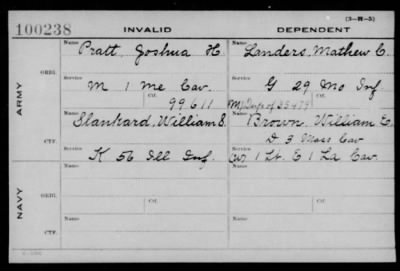 (3-R-5)
100238 INVALID DEPENDENT
Name Pratt, Joshua H. Name Landers, Mathew C.
ORIG. Service M 1 Me Cav. Service G 29 Mo Inf.
ARMY Ctf. 99611 Ctf.
Name Blankard, William S. Name Brown, William E.
D 3 Mass Cav
CTF. Service K 56 Ill Inf. Service 1 Lt. E 1 La Cav.
Name Name
ORIG.
Service Ctf. Service Ctf.
NAVY
Name Name
CTF.
Service Service